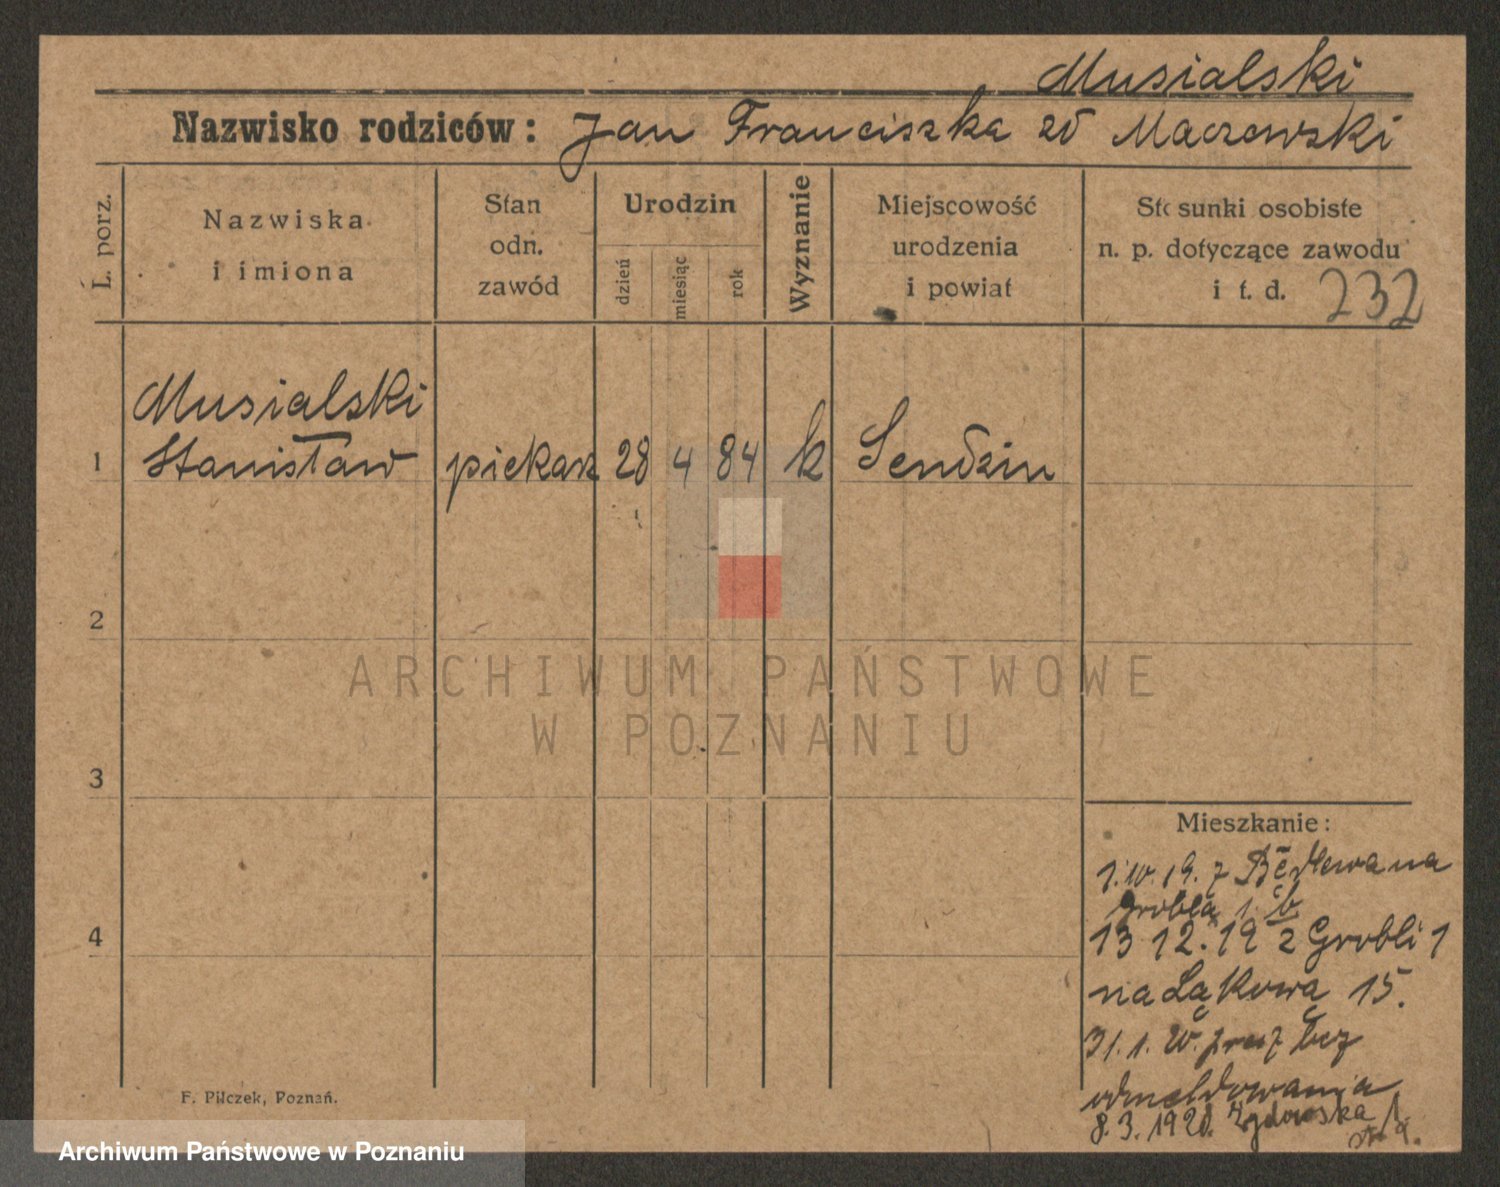 Musialski
Nazwisko rodziców: Jan Franciszka zd Maczewski
L. porz.
Nazwiska
i imiona
Stan
odn.
zawód
Urodzin
dzień
miesiąc
rok
Wyznanie
Miejscowość
urodzenia
i powiat
Stosunki osobiste
n. p. dotyczące zawodu
i t. d.
232
Musialski
1 Stanisław piekarz 28 4 84 k Sendzin
2
3
4
Mieszkanie:
1.10.19. z Będlewa na
Grobla 1 b
13 12. 19 z Grobli 1
na Łąkową 15.
31. 1. 20. precz bez
odmeldowania
8.3.1920. Żydowska
F. Pilczek, Poznań.
ARCHIWUM PAŃSTWOWE
W POZNANIU
Archiwum Państwowe w Poznaniu